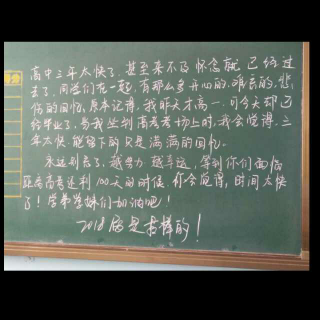 高中三年太快了，甚至来不及怀念就已经过
去了，同学们在一起，有那么多开心的，难忘的，悲
伤的回忆，原本记得，我昨天才高一，可今天却已
经毕业了，当我坐到高考考场上时，我会觉得，三
年太快，能留下的只是满满的回忆。
永远别忘了，越努力越幸运，等到你们面临
距离高考还剩100天的时候，你会觉得，时间太快
了！学弟学妹们加油吧！
2018届是最棒的！